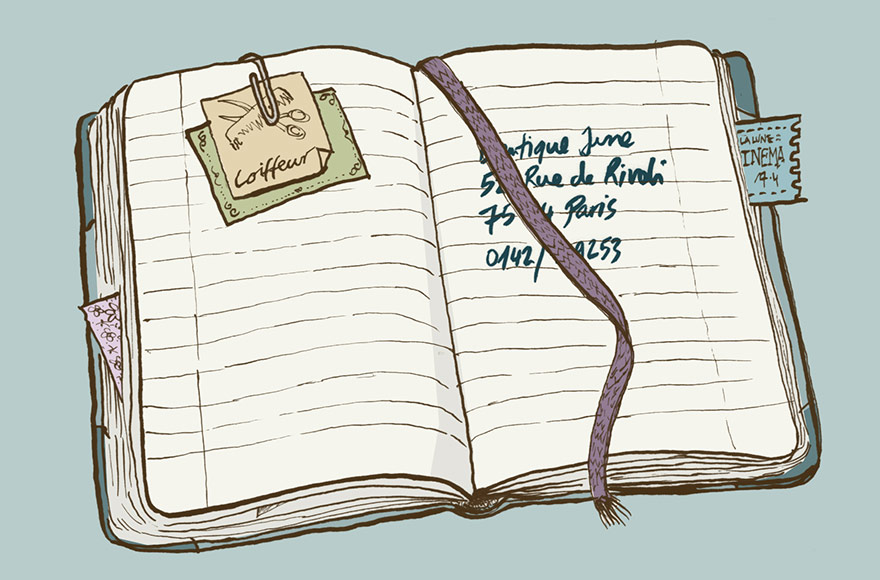 Coiffeur
Boutique June
5 Rue de Rivoli
75 4 Paris
0142/ 9253
LA LUNE
CINEMA
17.4